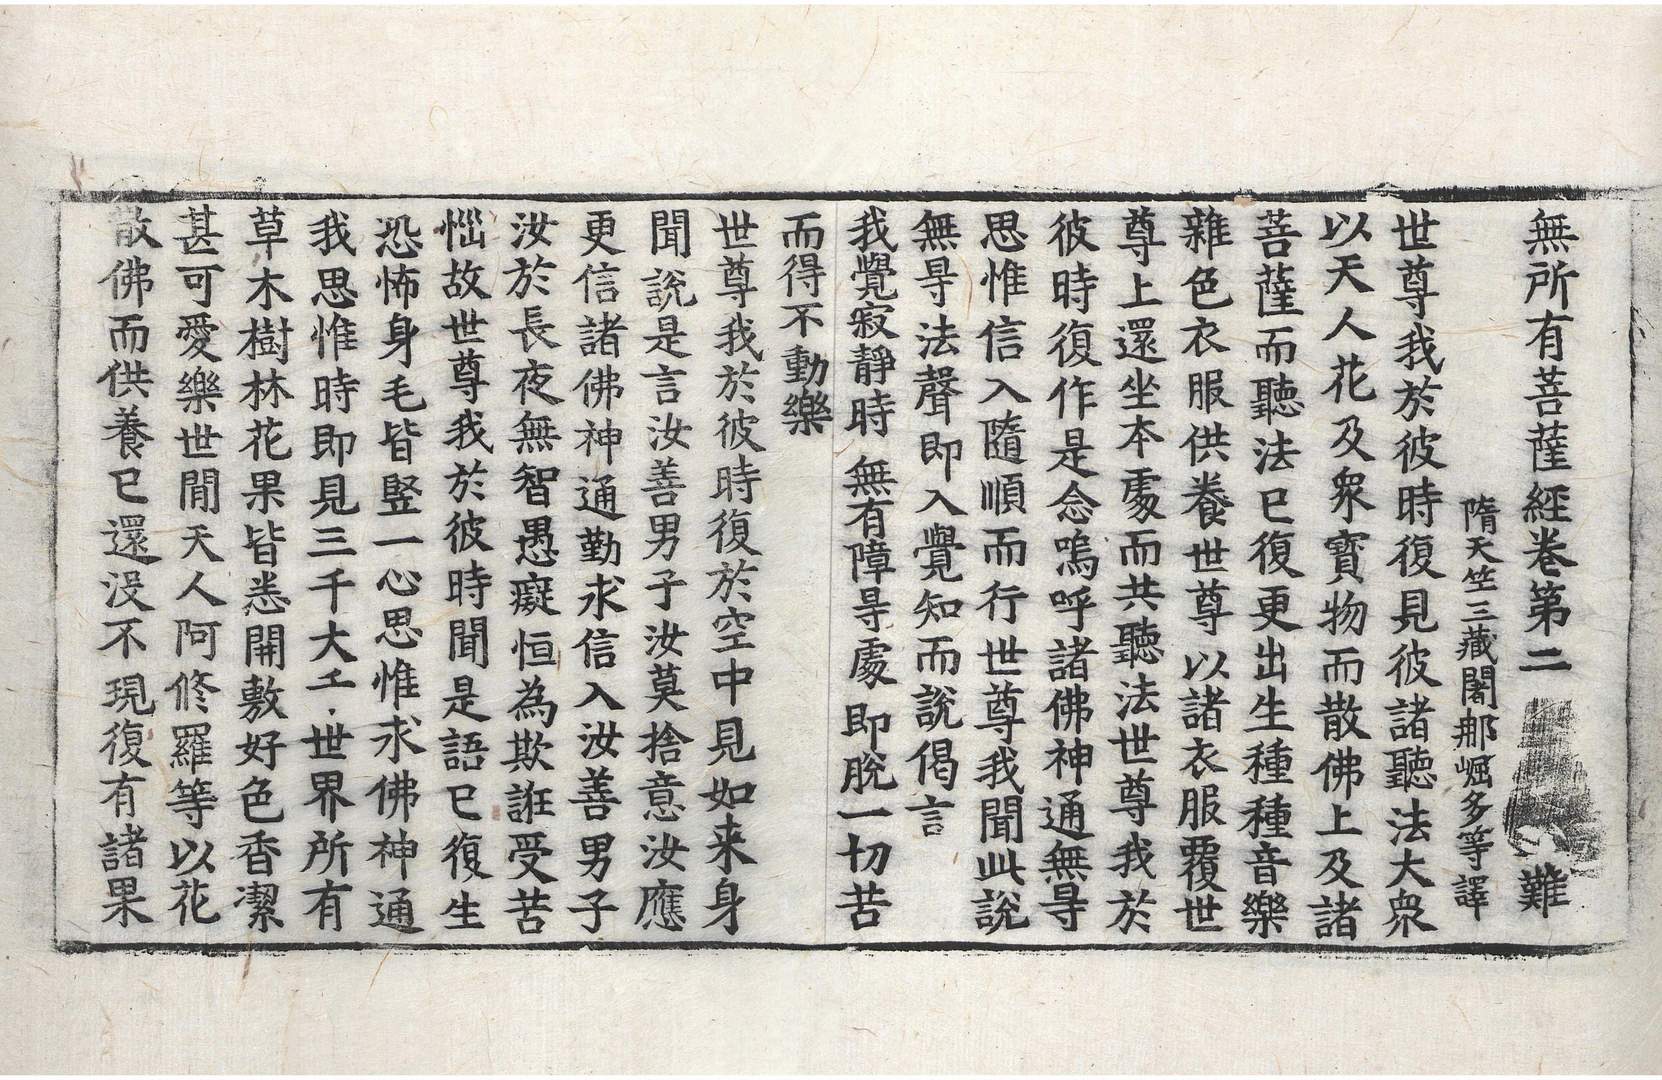 無所有菩薩經卷第二 難
隋天竺三藏闍那崛多等譯
世尊我於彼時復見彼諸聽法大衆
以天人花及衆寳物而散佛上及諸
菩薩而聽法已復更出生種種音樂
雜色衣服供養世尊以諸衣服覆世
尊上還坐本處而共聽法世尊我於
彼時復作是念嗚呼諸佛神通無㝵
思惟信入隨順而行世尊我聞此說
無㝵法聲即入覺知而說偈言
我覺寂静時 無有障㝵處 即脫一切苦
而得不動樂
世尊我於彼時復於空中見如来身
聞說是言汝善男子汝莫捨意汝應
更信諸佛神通勤求信入汝善男子
汝於長夜無智愚癡恒為欺誑受苦
惱故世尊我於彼時聞是語已復生
恐怖身毛皆竪一心思惟求佛神通
我思惟時即見三千大千世界所有
草木樹林花果皆悉開敷好色香潔
甚可愛樂世間天人阿修羅等以花
散佛而供養已還没不現復有諸果